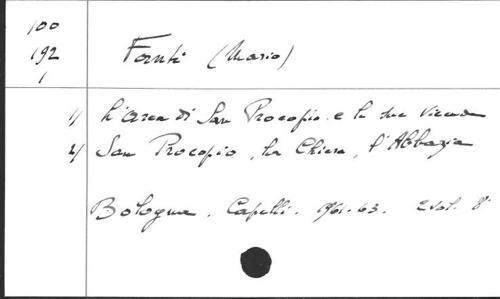 100
192
1
Fanti (Mario)
1/ L'arca di San Procopio e le sue vicende
2/ San Procopio, la Chiesa, l'Abbazia
Bologna. Capelli. 1961-63. 2 vol. 8°